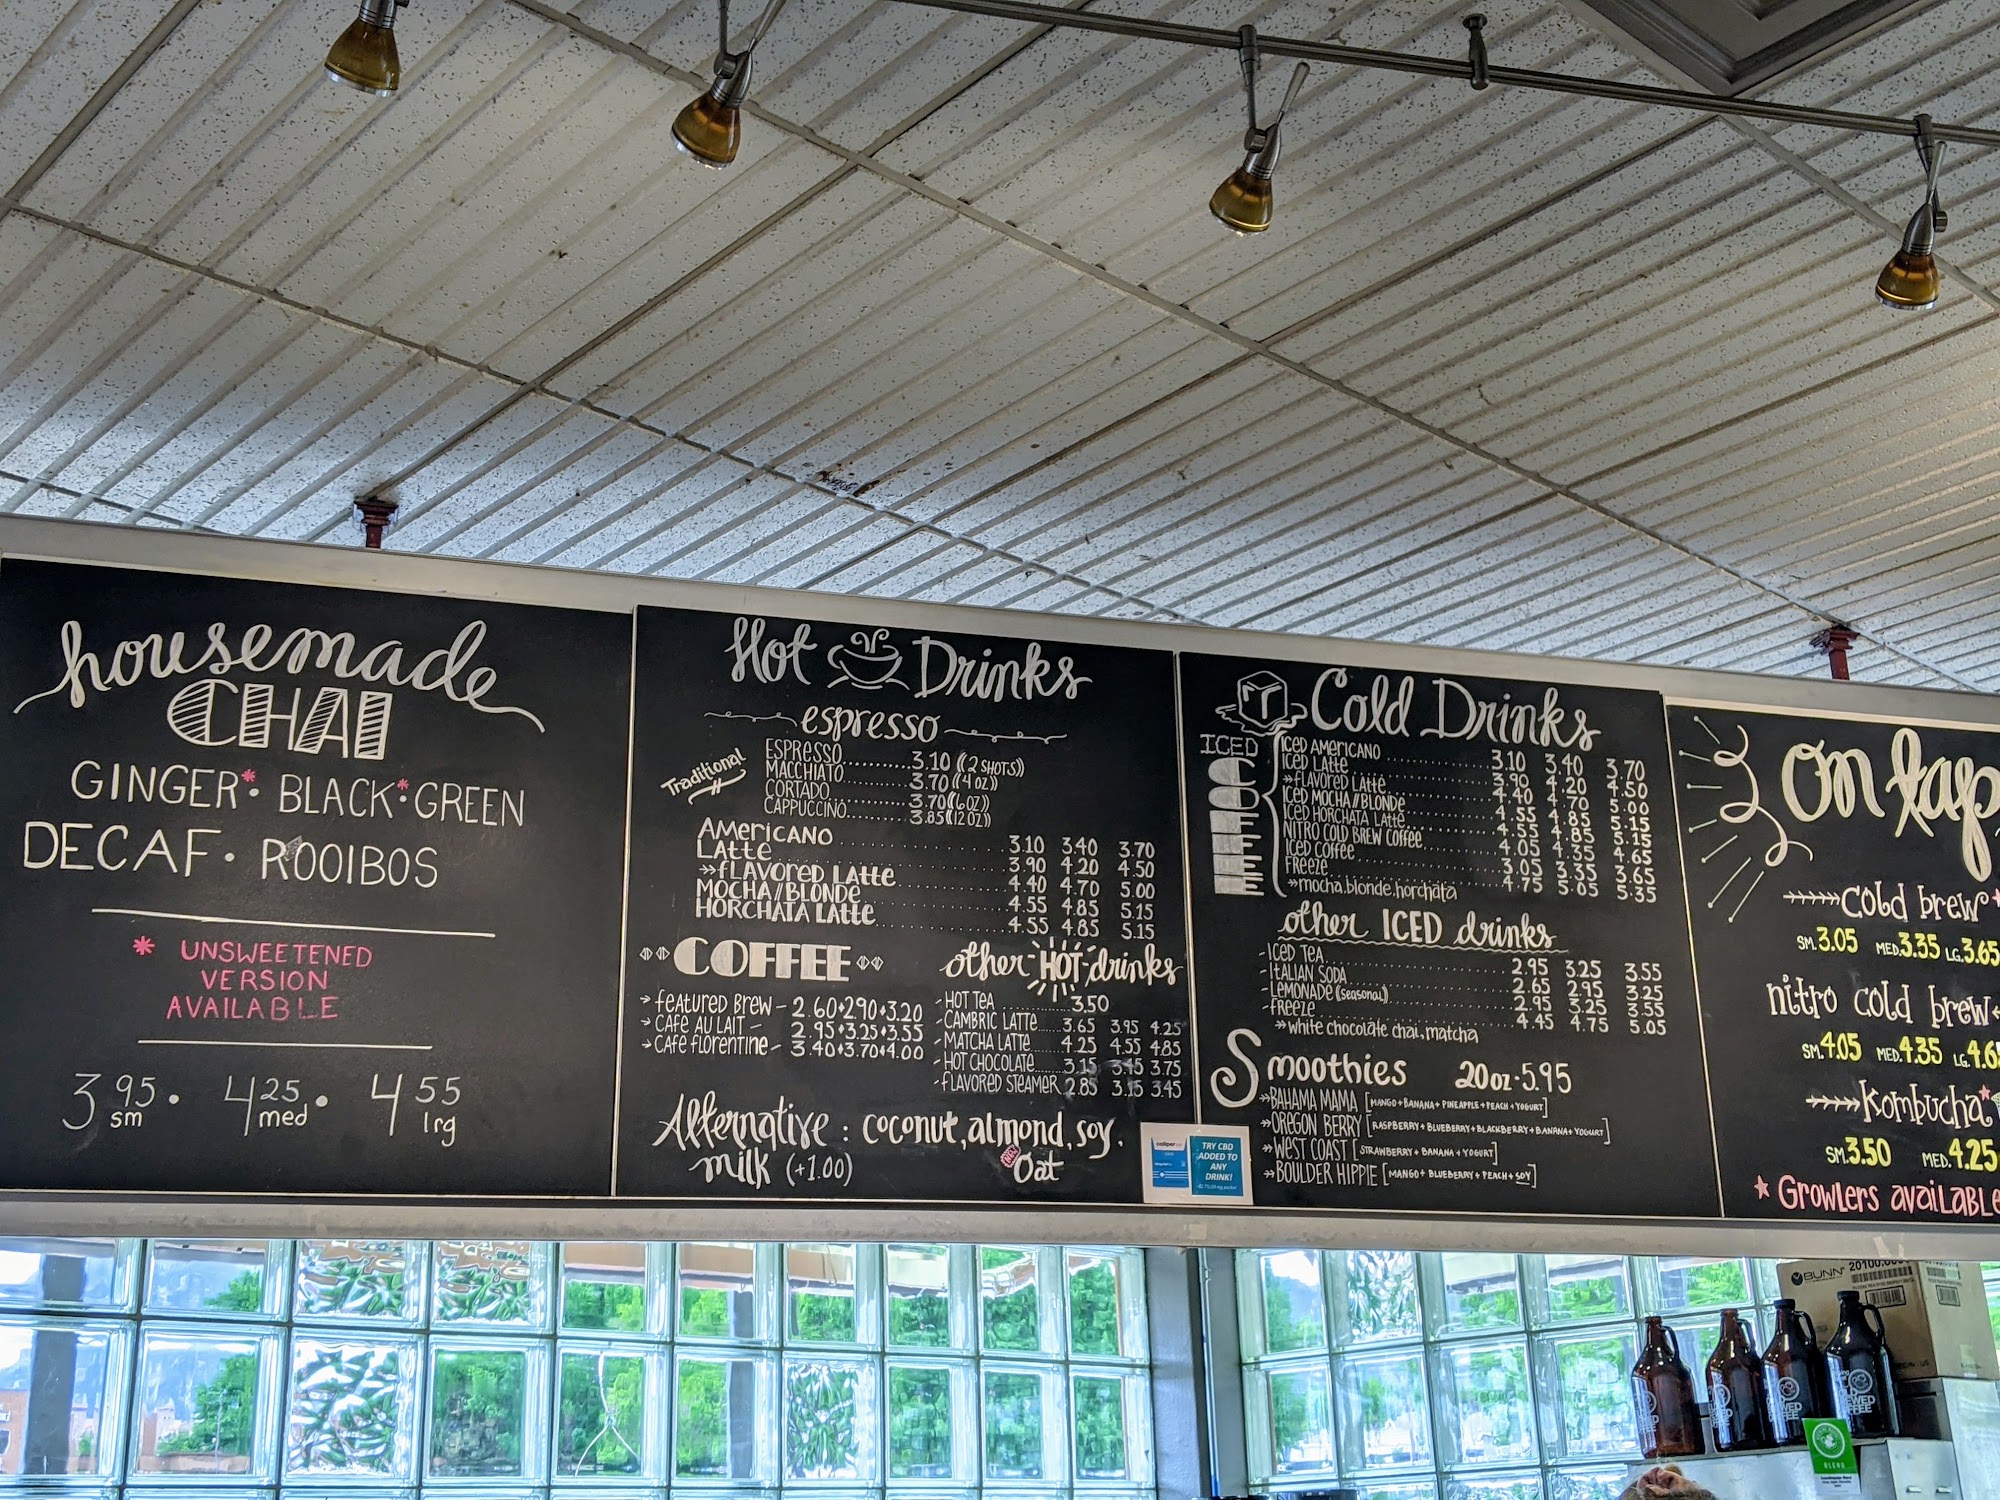 housemade
CHAI
GINGER* • BLACK* • GREEN
DECAF • ROOIBOS
* UNSWEETENED
VERSION
AVAILABLE
3.95 sm • 4.25 med • 4.55 lrg
Hot Drinks
espresso
Traditional
ESPRESSO 3.10 (2 SHOTS)
MACCHIATO 3.70 (4 OZ)
CORTADO 3.70 (6 OZ)
CAPPUCCINO 3.85 (12 OZ)
AMERICANO 3.10 3.40 3.70
LATTE 3.90 4.20 4.50
» FLAVORED LATTE 4.40 4.70 5.00
MOCHA//BLONDE 4.55 4.85 5.15
HORCHATA LATTE 4.55 4.85 5.15
COFFEE
FEATURED BREW - 2.60 • 2.90 • 3.20
CAFE AU LAIT - 2.95 • 3.25 • 3.55
CAFE FLORENTINE - 3.40 • 3.70 • 4.00
other HOT drinks
- HOT TEA 3.50
- CAMBRIC LATTE 3.65 3.95 4.25
- MATCHA LATTE 4.25 4.55 4.85
- HOT CHOCOLATE 3.15 3.45 3.75
- FLAVORED STEAMER 2.85 3.15 3.45
Alternative : coconut, almond, soy,
milk (+1.00) NEW Oat
TRY CBD
ADDED TO
ANY
DRINK!
Cold Drinks
ICED
COFFEE
ICED AMERICANO 3.10 3.40 3.70
ICED LATTE 3.90 4.20 4.50
» FLAVORED LATTE 4.40 4.70 5.00
ICED MOCHA//BLONDE 4.55 4.85 5.15
ICED HORCHATA LATTE 4.55 4.85 5.15
NITRO COLD BREW COFFEE 4.05 4.35 4.65
ICED COFFEE 3.05 3.35 3.65
FREEZE 4.75 5.05 5.35
» mocha, blonde, horchata
other ICED drinks
- ICED TEA 2.95 3.25 3.55
- ITALIAN SODA 2.65 2.95 3.25
- LEMONADE (seasonal) 2.95 3.25 3.55
- FREEZE 4.45 4.75 5.05
» white chocolate chai, matcha
Smoothies 20oz • 5.95
» BAHAMA MAMA [MANGO + BANANA + PINEAPPLE + PEACH + YOGURT]
» OREGON BERRY [RASPBERRY + BLUEBERRY + BLACKBERRY + BANANA + YOGURT]
» WEST COAST [STRAWBERRY + BANANA + YOGURT]
» BOULDER HIPPIE [MANGO + BLUEBERRY + PEACH + SOY]
on tap
cold brew*
SM. 3.05 MED. 3.35 LG. 3.65
nitro cold brew
SM. 4.05 MED. 4.35 LG. 4.6
kombucha*
SM. 3.50 MED. 4.25
* Growlers available
BUNN 20100.00
BREWED
COFFEE
BLEND